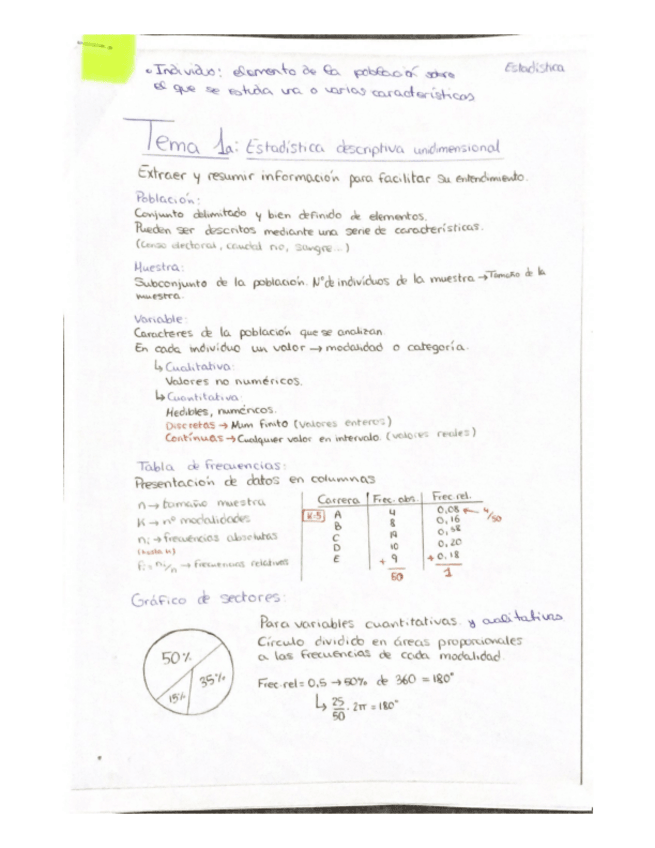 • Individuo: elemento de la población sobre
el que se estudia una o varias características
Estadística
Tema 1a: Estadística descriptiva unidimensional
Extraer y resumir información para facilitar su entendimiento.
Población:
Conjunto delimitado y bien definido de elementos.
Pueden ser descritos mediante una serie de características.
(Censo electoral, caudal río, sangre...)
Muestra:
Subconjunto de la población. Nº de individuos de la muestra → Tamaño de la
muestra.
Variable:
Caracteres de la población que se analizan.
En cada individuo un valor → modalidad o categoría.
↳ Cualitativa:
Valores no numéricos.
↳ Cuantitativa:
Medibles, numéricos.
Discretas → Num finito (valores enteros)
Continuas → Cualquier valor en intervalo. (valores reales)
Tabla de frecuencias:
Presentación de datos en columnas
n → tamaño muestra
K → nº modalidades
ni → frecuencias absolutas
(hasta n)
fi = ni/n → frecuencias relativas
Carrera Frec. abs. Frec. rel.
K=5 A 4 0,08 ← 4/50
B 8 0,16
C 19 0,38
D 10 0,20
E + 9 + 0,18
50 1
Gráfico de sectores:
Para variables cuantitativas y cualitativas.
Círculo dividido en áreas proporcionales
a las frecuencias de cada modalidad.
50%
35%
15%
Frec. rel = 0,5 → 50% de 360 = 180°
↳ 25/50 · 2π = 180°